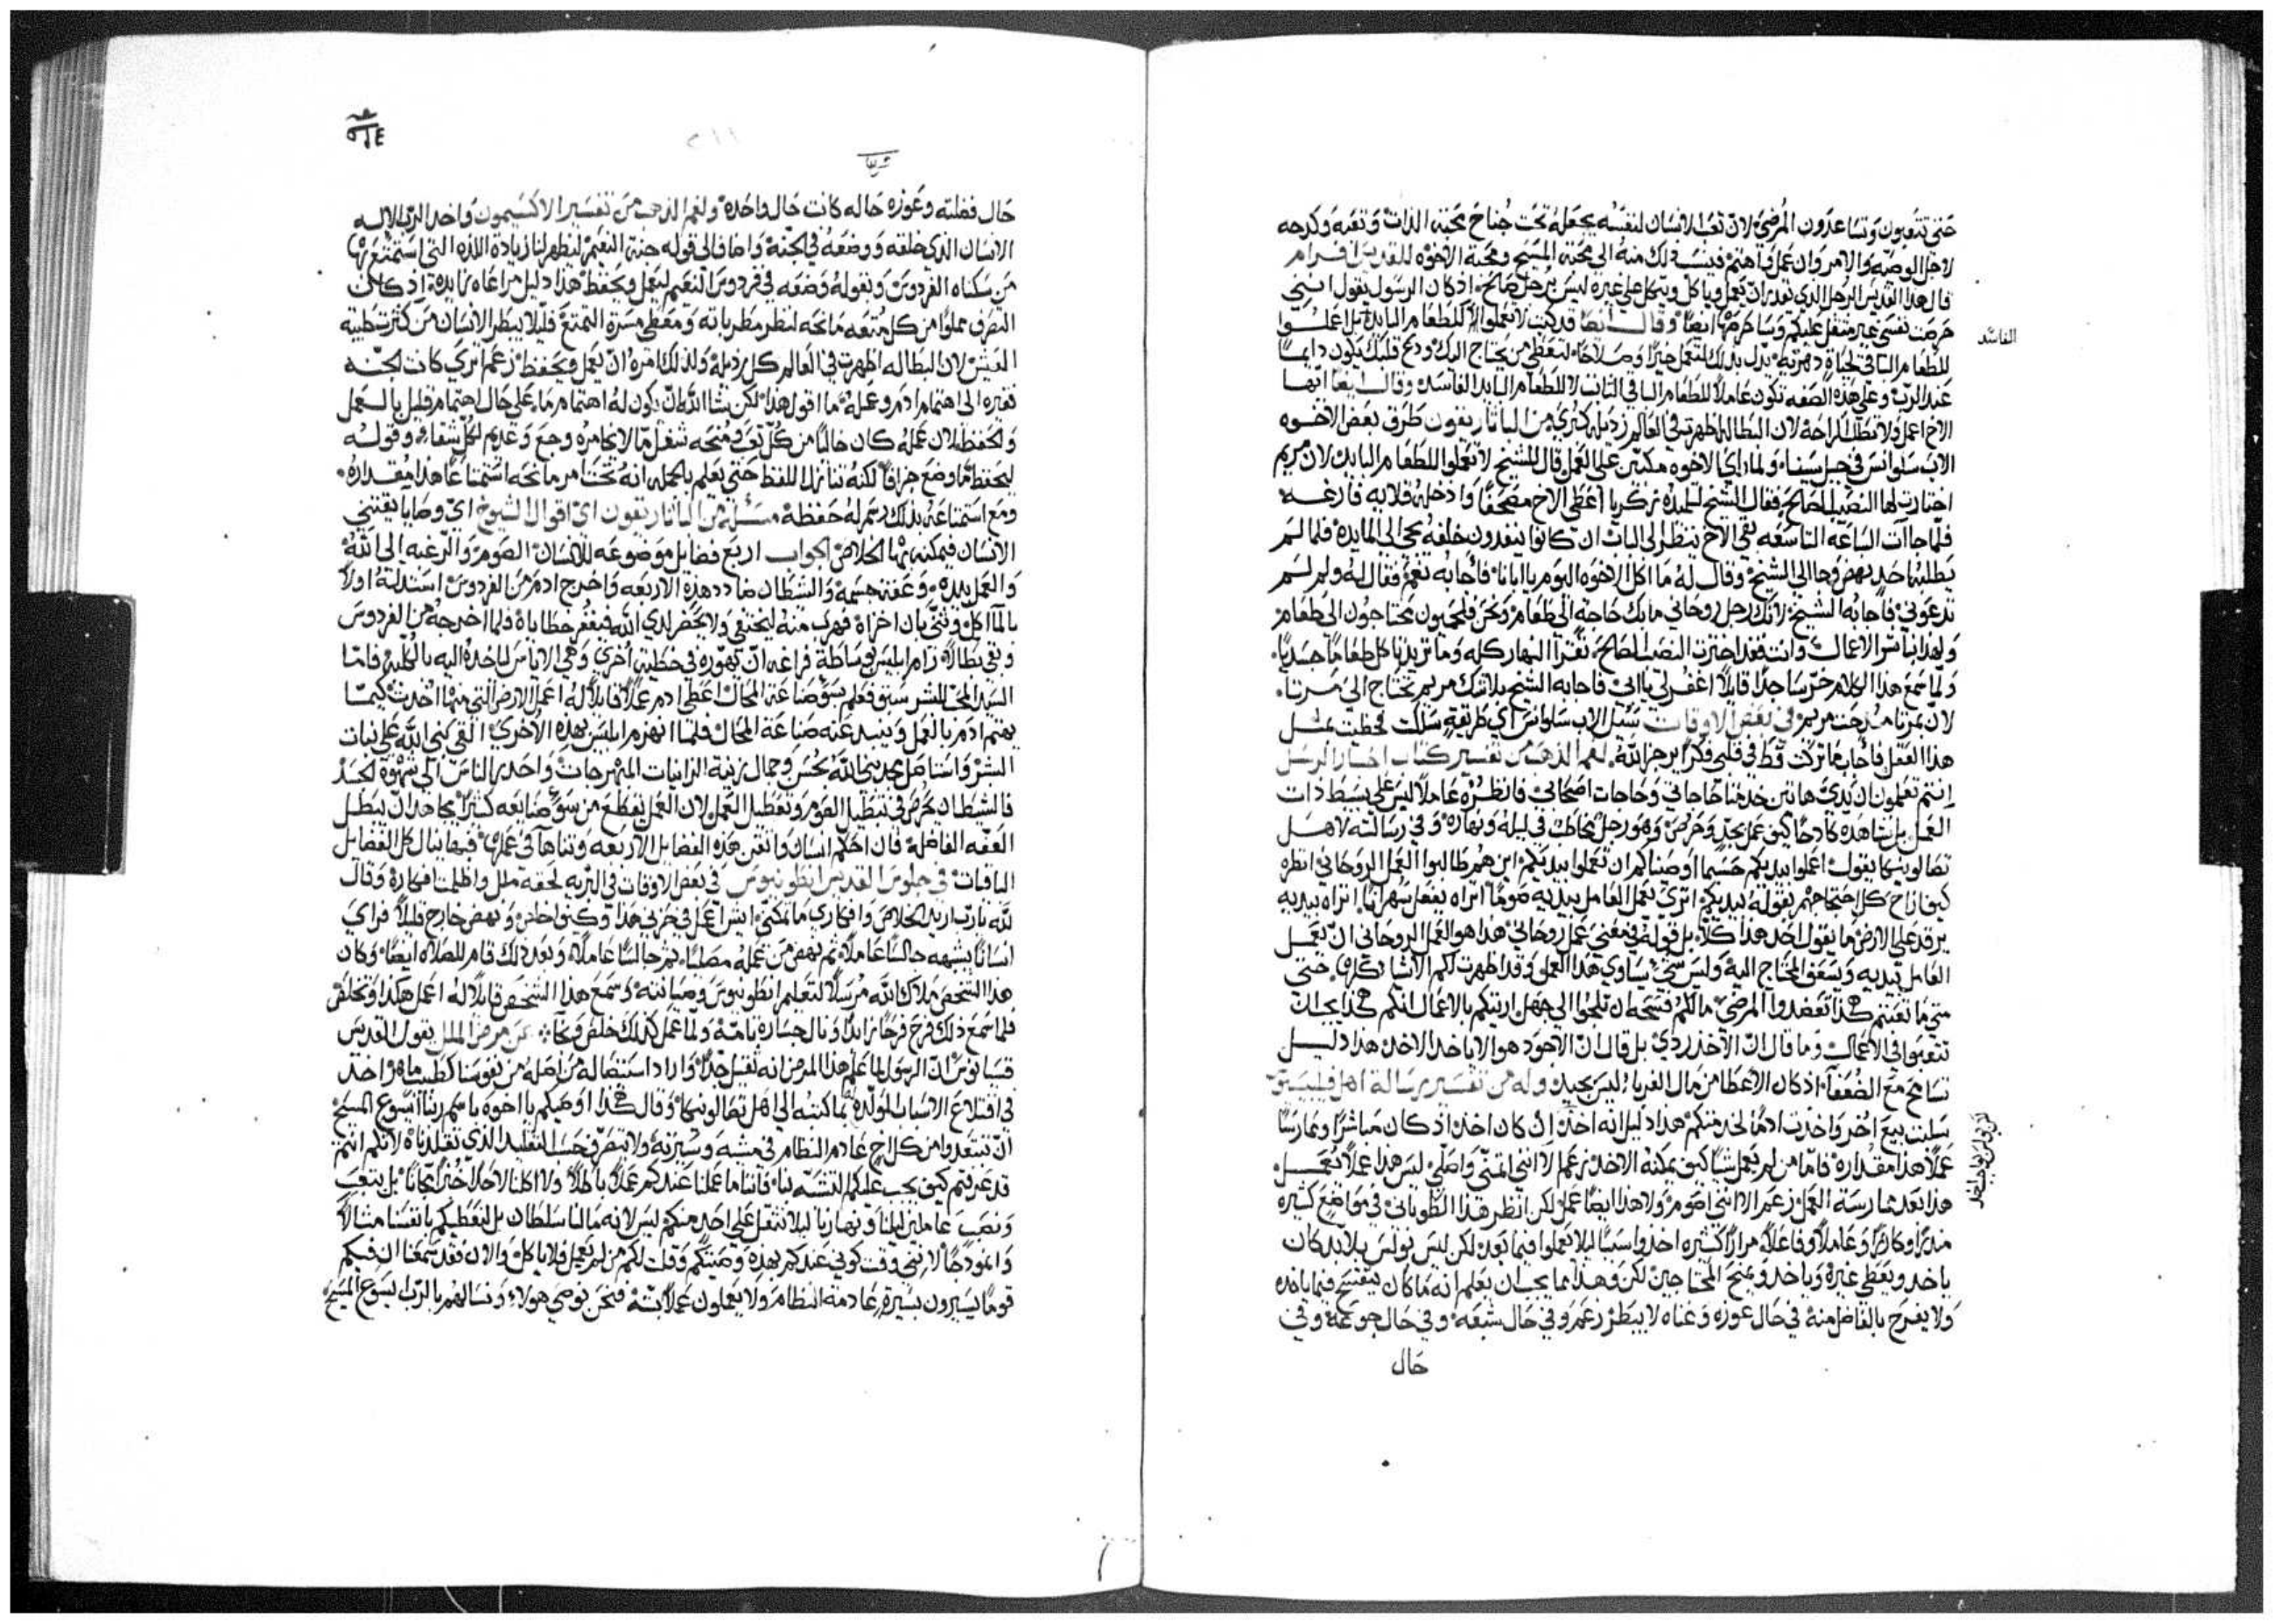 حتى تتعبون وتساعدون المرضى لان تعب الانسان لنفسه يجعله تحت جناح محبته الذات وتعبه وكدحه
لاجل الوصيه والامر وان عمل واهتم فينسب ذلك منه الى محبة المسيح ومحبة الاخوه للقديس افرام
قال هذا القديس الرجل الذي يقدر ان يعمل وياكل ويتكل على غيره ليس برجل صالح اذ كان الرسول يقول انني
حرصت نفسي غير مثقل عليكم وساحرصها ايضا وقال ايضا قد كتب لا تعملوا للطعام البايد بل اعملوا
الفاسد
للطعام الباقي لحياة دهريه بدل بذلك لتعمل خيرا وصلاحا لتعطي من يحتاج اليك ودع قلبك يكون دايما
عند الرب وعلى هذه الصفه تكون عاملا للطعام الباقي الثابت لا للطعام البايد الفاسد وقال ايضا ايها
الاخ اعمل ولا تطلب الراحه لان البطاله اظهرت في العالم رذيله كبرى من الباتاريقون طرق بعض الاخوه
الاب سلوانس في جبل سينا ولما راى الاخوه مكدين على العمل قال للشيخ لا تعملوا للطعام البايد لان مريم
اختارت لها النصيب الصالح فقال الشيخ لتلميذه زكريا اعطي الاخ مصحفا وادخله قلايه فارغه
فلما جاات الساعه التاسعه بقي الاخ ينتظر الى الباب ان كانوا ينفدون خلفه يجي الى المايده فلما لم
يطلبه احد نهض وجا الى الشيخ وقال له ما اكل الاخوه اليوم يا ابانا فاجابه نعم فقال له ولم لم
تدعوني فاجابه الشيخ لانك رجل روحاني ما بك حاجه الى طعام ونحن فلحميون محتاجون الى طعام
ولهذا نباشر الاعمال وانت فقد اخترت النصيب الصالح تقرا النهار كله وما تريد تاكل طعاما جسديا
ولما سمع هذا الكلام خر ساجدا قايلا اغفر لي يا ابي فاجابه الشيخ بلا شك مريم تحتاج الى مرتا
لان بمرتا مدحت مريم في بعض الاوقات سيل الاب سلوانس اي طريقه سلكت فحظيت بمثل
هذا العقل فاجاب ما تركت قط في قلبي فكرا يرجز الله لفم الذهب من تفسير كتاب اخبار الرسل
انتم تعلمون ان يدي هاتين خدمتا حاجاتي وحاجات اصحابي فانظره عاملا ليس على بسيط ذات
العمل بل تشاهده كادحا كيف عمل بجد وحرص وهو رجل يخاطب في ليله ونهاره وفي رسالته لاهل
تصالونيكا يقول اعملوا بيديكم حسبما اوصيناكم ان تعملوا بيديكم اين هم طالبوا العمل الروحاني انظره
كيف ازاح كل احتجاجهم بقوله بيديكم اترى يعمل العامل بيديه صوما اتراه يفعل سهرانا اتراه بيديه
يرقد على الارض ما يقول احد هذا كلا بل قوله في معنى عمل روحاني هذا هو العمل الروحاني ان يعمل
العامل بيديه ويسعف المحتاج اليه وليس شي يساوي هذا العمل وقد اظهرت لكم الاشيا كلها حتى
متى ما تعبتم هكذا تعضدوا المرضى
تتعبوا في الاعمال وما قال ان الاخذ ردي بل قال ان الاجود هو الا ياخذ الاخذ هذا دليل
تسامح مع الضعفاء اذ كان الاعطا من مال الغربا ليس بجيد وله من تفسير رسالة اهل فيليبسيوس
سلبت بيع اخر واخذت ادما لخدمتكم هذا دليل انه اخذ ان كان اخذ اذ كان مباشرا وممارسا
عملا هذا مقداره فاما من لم يعمل شيا كيف يمكنه الاخذ زعم لا انني اتمنى واصلي ليس هذا عملا يعمل
هذا بعد ممارسة العمل زعم الا انني اصوم ولا هذا ايضا عمل لكن انظر هذا الطوباني في مواضع كثيره
منذرا وكارزا وعاملا وفاعلا مرارا كثيره اخذوا سببا ليلا يعملوا فيما بعد لكن ليس بولس بلا بد كان
ياخذ ويعطي غيره وياخذ ويمنح المحتاجين لكن وهذا مما يجب ان يعلم انه ما كان يتفسح فيما ياخذه
ولا يفرح بالفاضل منه في حال عوزه وغناه لا يبطر زعم وفي حال شبعه وفي حال جوعه وفي
حال
حال فضلته وعوزه حاله كانت حال واحده ولفم الذهب من تفسير الاكسيمون واخذ الرب الاله
الانسان الذي خلقه ووضعه في الجنه واضاف الى قوله جنة النعيم ليظهر لنا زيادة اللذه التي استمتع بها
من سكناه الفردوس وبقوله وضعه في فردوس النعيم ليعمل ويحفظ هذا دليل مراعاه زايده اذ كان
التصرف مملوا من كل متعه مانحه لنظر مطرباته ومعطي مسرة التمتع فليلا يبطر الانسان من كثرة طيبه
العيش لان البطاله اظهرت في العالم كل رذيله ولذلك امره ان يعمل ويحفظ زعم ترى كانت الجنه
فقيره الى اهتمام ادم وعمله ما اقول هذا لكن شا الله ان يكون له اهتمام ما على حال اهتمام قليل بالعمل
والحفظ لان عمله كان خاليا من كل تعب ومنحه شغل ما لا يخامره وجع وعديم لكل شقاء وقوله
ليحفظ ما وضع جزافا لكنه تنازل للفظ حتى يعلم بالجمله انه تحت امر مانحه استمتاعا هذا مقداره
ومع استمتاعه بذلك رسم له حفظه مسئله من الباتاريقون اي اقوال الشيوخ اي وصايا يقتني
الانسان فيمكنه بها الخلاص الجواب اربع فضايل موضوعه للانسان الصوم والرغبه الى الله
والعمل بيده وعفة جسمه والشيطان ضادد هذه الاربعه واخرج ادم من الفردوس استدله اولا
بالماكل وثنى بان اخزاه فهرب منه ليختفي ولا يحضر لدى الله فيغفر خطاياه فلما اخرجه من الفردوس
وبقي بطالا رام ابليس بوساطة فراغه ان يهوره في خطيه اخرى وهي الاياس لياخذه اليه بالكليه فاما
السيد المحب للبشر سبق فعلم بسو صناعة المحال اعطى ادم عملا قايلا له اعمل الارض التي منها اخذت كيما
يهتم ادم بالعمل ويبيد عنه صناعة المحال فلما انهزم ابليس بهذه الاخرى
فالشيطان يحرص في تبطيل الصوم وتعطيل العمل لان العمل يقطع من سو صنايعه كثيرا يجاهد ان يبطل
العفه الفاضله فان احكم انسان واتقن هذه الفضايل الاربعه وتناها في عملها فبها ينال كل الفضايل
الباقيات في جلوس القديس انطونيوس في بعض الاوقات في البريه لحقه ملل واظلمت افكاره وقال
لله يا رب اريد الخلاص وافكاري ما تمكني ايش اعمل في حزني هذا وكيف اخلص ونهض خارج قليلا فراى
انسانا يشبهه جالسا عاملا ثم نهض من عمله مصليا ثم جالسا عاملا وبعد ذلك قام للصلاه ايضا وكان
هذا الشخص ملاك الله مرسلا لتعلم انطونيوس وصيانته وسمع هذا الشخص قايلا له اعمل هكذا وتخلص
فلما سمع ذلك فرح فرحا زايدا ونال جساره تامه ولما عمل كذلك خلص ونجا عن مرض الملل يقول القديس
قسيانوس ان الرسول لما علم هذا المرض انه ثقيل جدا واراد استئصاله من اصله من نفوسنا كطبيب ماهر اخذ
في اقتلاع الاسباب المولده مما كتبه الى اهل تصالونيكا وقال هكذا اوصيكم يا اخوه باسم ربنا يسوع المسيح
ان تبتعدوا من كل اخ عادم النظام في مشيه وسيرته ولا يتصرف حسب التقليد الذي تقلدناه لانكم انتم
قد عرفتم كيف يجب عليكم التشبه بنا فاننا ما عملنا عندكم عملا باطلا ولا اكلنا لاحد خبزا مجانا بل بتعب
ونصب عاملين ليلنا ونهارنا ليلا نثقل على احد منكم ليس لانه ما لنا سلطان بل لنعطيكم بانفسنا مثالا
وانموذجا لانني وقت كوني عندكم بهذه وصيتكم وقلت لكم من لم يعمل فلا ياكل والان فقد سمعنا ان فيكم
قوما يسيرون بسيره عادمة النظام ولا يعملون عملا بته فنحن نوصي هولاء ونسالهم بالرب يسوع المسيح